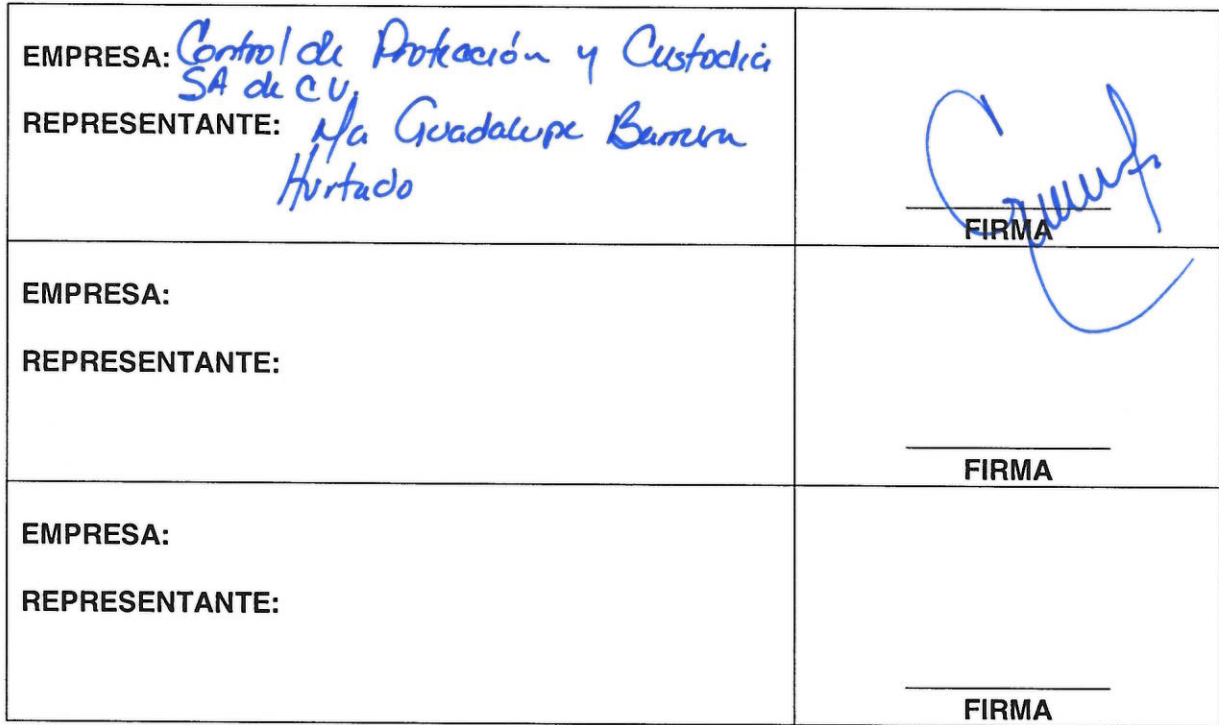 EMPRESA: Control de Protección y Custodia
SA de CV.
REPRESENTANTE: Ma Guadalupe Barrera
Hurtado
FIRMA
EMPRESA:
REPRESENTANTE:
FIRMA
EMPRESA:
REPRESENTANTE:
FIRMA